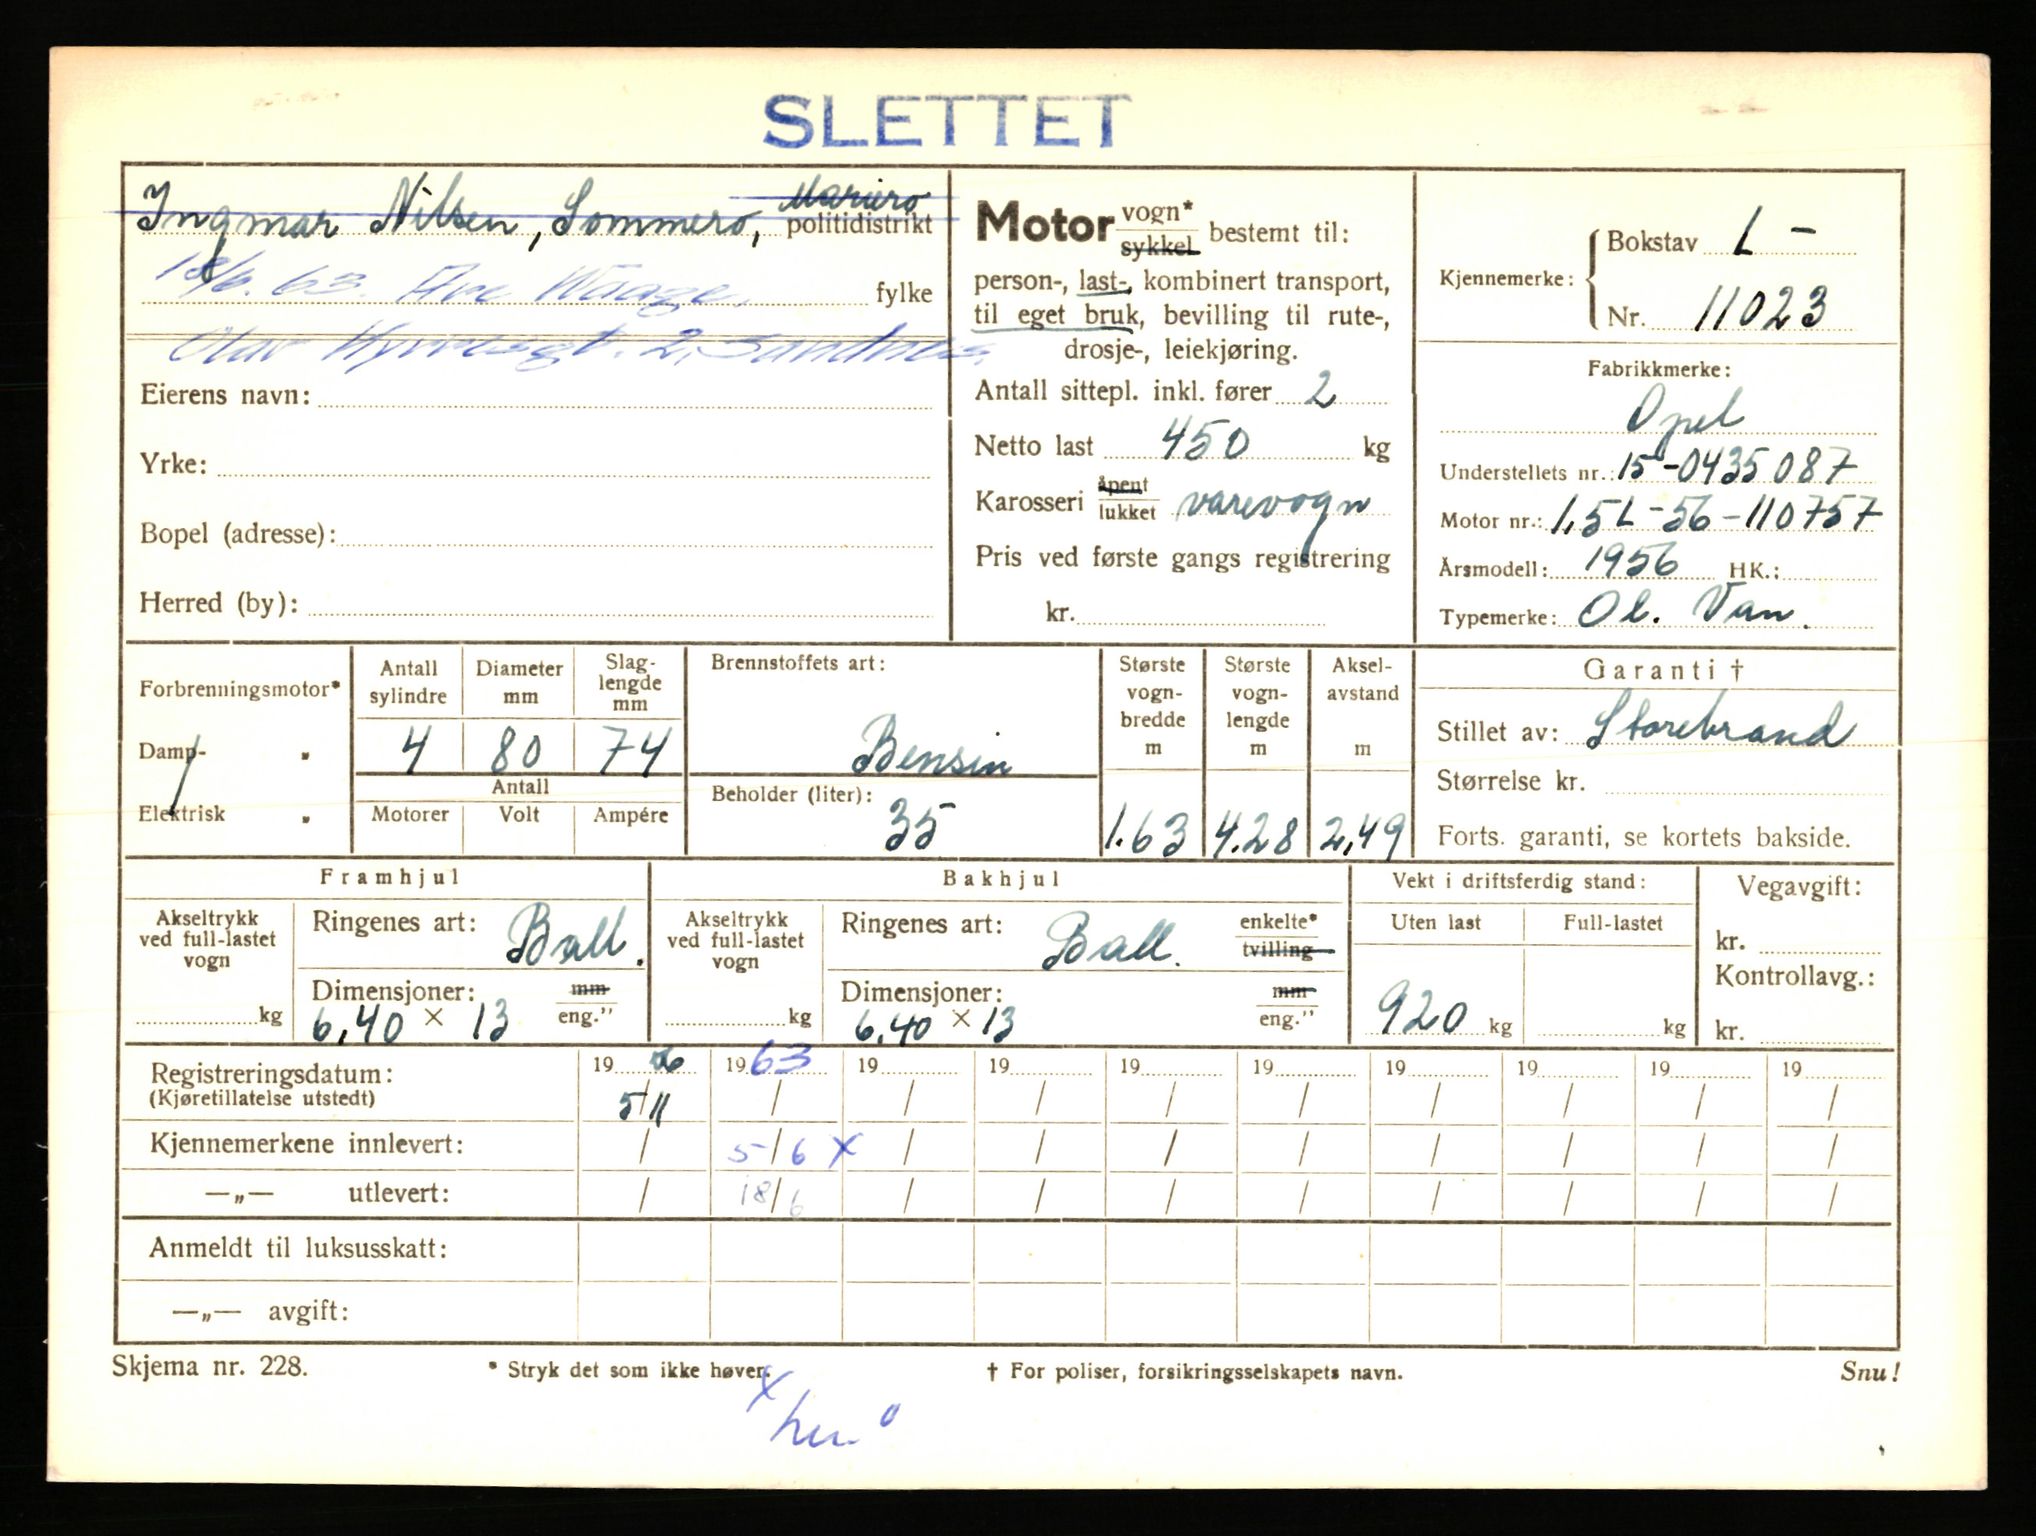 SLETTET
Mariero
Ingmar Nilsen, Sommero, politidistrikt
18/6. 63. Are Waage. fylke
Olav Kyrresgt. 2, Sandnes
Eierens navn:
Yrke:
Bopel (adresse):
Herred (by):
Motor vogn* sykkel bestemt til:
person-, last-, kombinert transport,
til eget bruk, bevilling til rute-,
drosje-, leiekjøring.
Antall sittepl. inkl. fører 2
Netto last 450 kg
Karosseri åpent lukket varevogn
Pris ved første gangs registrering
kr.
Kjennemerke: Bokstav L -
Nr. 11023
Fabrikkmerke:
Opel
Understellets nr.: 15-0435087
Motor nr.: 1,5L-56-110757
Årsmodell: 1956 HK.:
Typemerke: Ol. Van.
Forbrenningsmotor*
Damp- "
Elektrisk "
Antall sylindre Diameter mm Slag-lengde mm
4 80 74
Antall
Motorer Volt Ampére
Brennstoffets art:
Bensin
Beholder (liter):
35
Største vogn-bredde m Største vogn-lengde m Aksel-avstand m
1.63 4.28 2,49
Garanti †
Stillet av: Storebrand
Størrelse kr.
Forts. garanti, se kortets bakside.
Framhjul
Akseltrykk ved full-lastet vogn
kg
Ringenes art: Ball.
Dimensjoner: mm eng."
6,40 × 13
Bakhjul
Akseltrykk ved full-lastet vogn
kg
Ringenes art: Ball. enkelte* tvilling
Dimensjoner: mm eng."
6,40 × 13
Vekt i driftsferdig stand:
Uten last Full-lastet
920 kg kg
Vegavgift:
kr.
Kontrollavg.:
kr.
Registreringsdatum: 19 56 19 63 19 19 19 19 19 19 19 19
(Kjøretillatelse utstedt) 5/11 / / / / / / / / /
Kjennemerkene innlevert: / 5/6 x / / / / / / / /
—„— utlevert: / 18/6 / / / / / / / /
Anmeldt til luksusskatt:
—„— avgift:
Skjema nr. 228. * Stryk det som ikke høver. † For poliser, forsikringsselskapets navn. Snu!
x